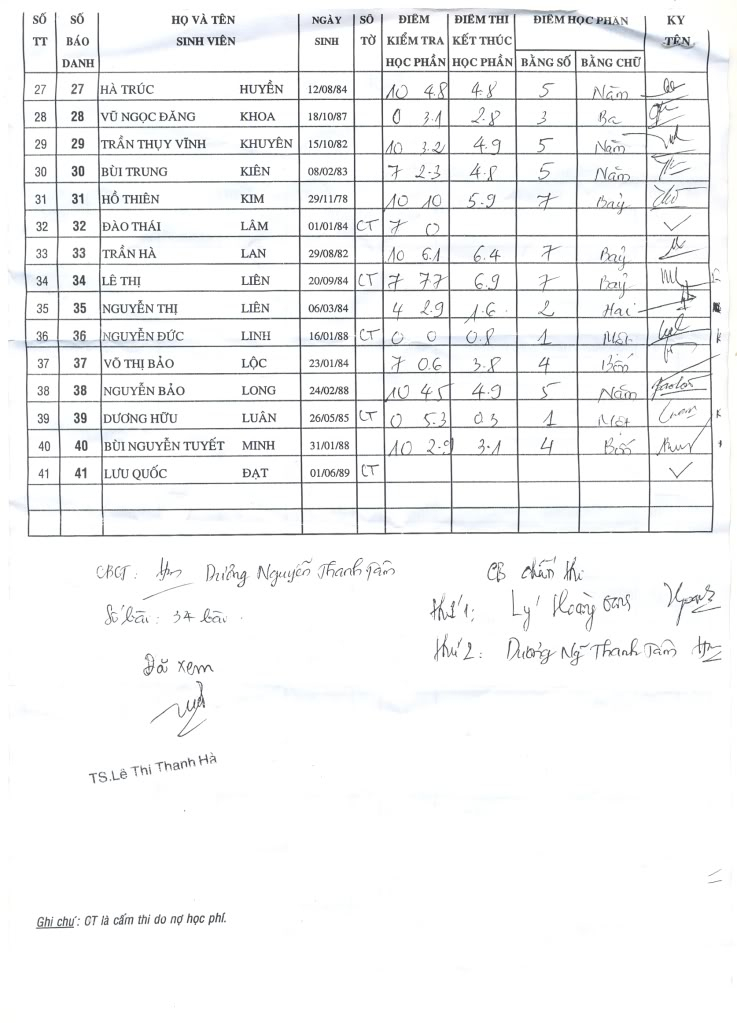 SỐ TT SỐ BÁO DANH HỌ VÀ TÊN SINH VIÊN NGÀY SINH SỐ TỜ ĐIỂM KIỂM TRA HỌC PHẦN ĐIỂM THI KẾT THÚC HỌC PHẦN ĐIỂM HỌC PHẦN BẰNG SỐ BẰNG CHỮ KÝ TÊN
27 27 HÀ TRÚC HUYỀN 12/08/84 10 4.8 4.8 5 Năm
28 28 VŨ NGỌC ĐĂNG KHOA 18/10/87 0 3.1 2.8 3 Ba
29 29 TRẦN THỤY VĨNH KHUYÊN 15/10/82 10 3.2 4.9 5 Năm
30 30 BÙI TRUNG KIÊN 08/02/83 7 2.3 4.8 5 Năm
31 31 HỒ THIÊN KIM 29/11/78 10 10 5.9 7 Bảy
32 32 ĐÀO THÁI LÂM 01/01/84 CT 7 0
33 33 TRẦN HÀ LAN 29/08/82 10 6.1 6.4 7 Bảy
34 34 LÊ THỊ LIÊN 20/09/84 CT 7 7.7 6.9 7 Bảy
35 35 NGUYỄN THỊ LIÊN 06/03/84 4 2.9 1.6 2 Hai
36 36 NGUYỄN ĐỨC LINH 16/01/88 CT 0 0 0.8 1 Một
37 37 VÕ THỊ BẢO LỘC 23/01/84 7 0.6 3.8 4 Bốn
38 38 NGUYỄN BẢO LONG 24/02/88 10 4.5 4.9 5 Năm
39 39 DƯƠNG HỮU LUÂN 26/05/85 CT 0 5.3 0.3 1 Một
40 40 BÙI NGUYỄN TUYẾT MINH 31/01/88 10 2.9 3.1 4 Bốn
41 41 LƯU QUỐC ĐẠT 01/06/89 CT
CBCT: Dương Nguyễn Thanh Tâm
CB chấm thi
Số bài: 34 bài.
thứ 1: Lý Hoàng
thứ 2: Dương Ng Thanh Tâm
Đã xem
TS.Lê Thị Thanh Hà
Ghi chú: CT là cấm thi do nợ học phí.